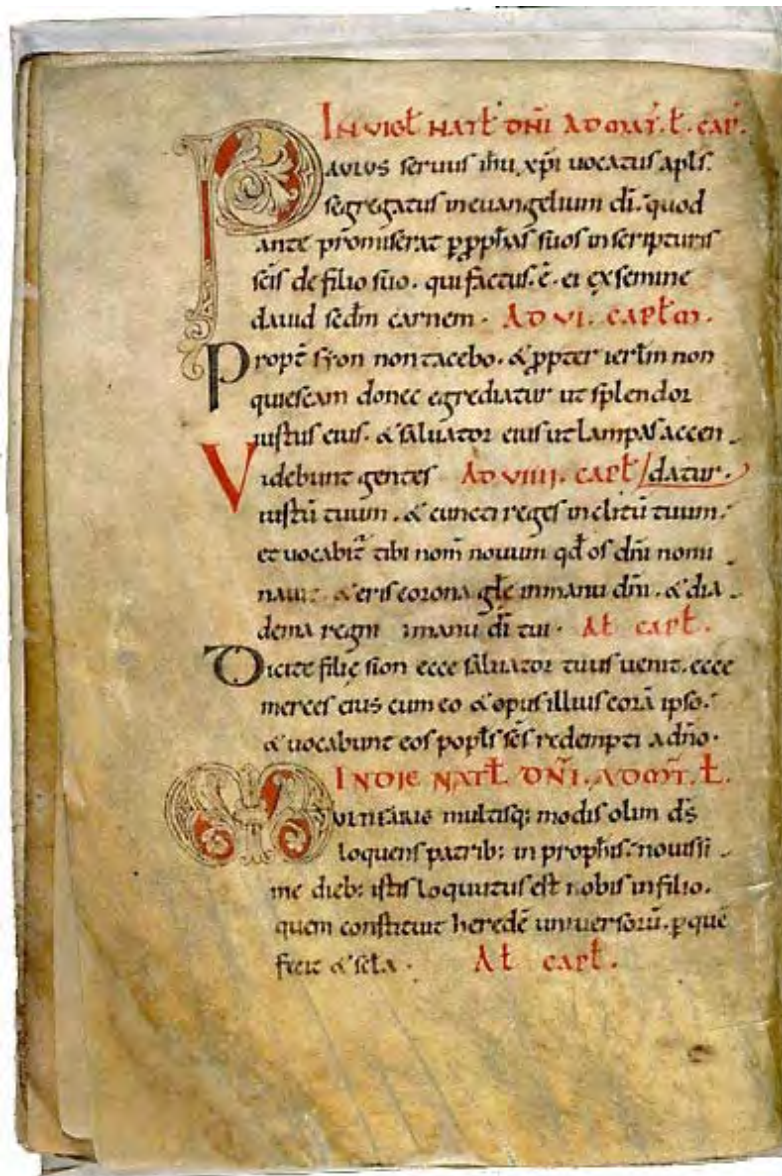 IN VIGL NATL DNI AD MAT. L. CAP.
PAULUS servus ihu xpi uocatus apls.
segregatus in euangelium di. quod
ante promiserat p pphas suos in scripturis
scis de filio suo. qui factus. e. ei ex semine
dauid sedm carnem. AD VI. CAPLM.
Propt syon non tacebo. & ppter ierlm non
quiescam donec egrediatur ut splendor
iustus eius. & saluator eius ut lampas accen
Videbunt gentes AD VIIII. CAPL datur.
iustu tuum. & cuncti reges inclitu tuum.
et uocabit tibi nom nouum qd os dni nomi
nauit. & eris corona gle in manu dni. & dia
dema regni imanu di tui. AL CAPL.
Dicite filie sion ecce saluator tuus uenit. ecce
merces eius cum eo & opus illius cora ipso.
& uocabunt eos popls scs redempti a dno.
IN DIE NATL DNI. AD MT. L.
MULTIFARIE multisq; modis olim ds
loquens patrib; in prophis. nouissi
me dieb; istis loquutus est nobis in filio.
quem constituit herede uniuersoru. p que
fecit & scla. AL CAPL.